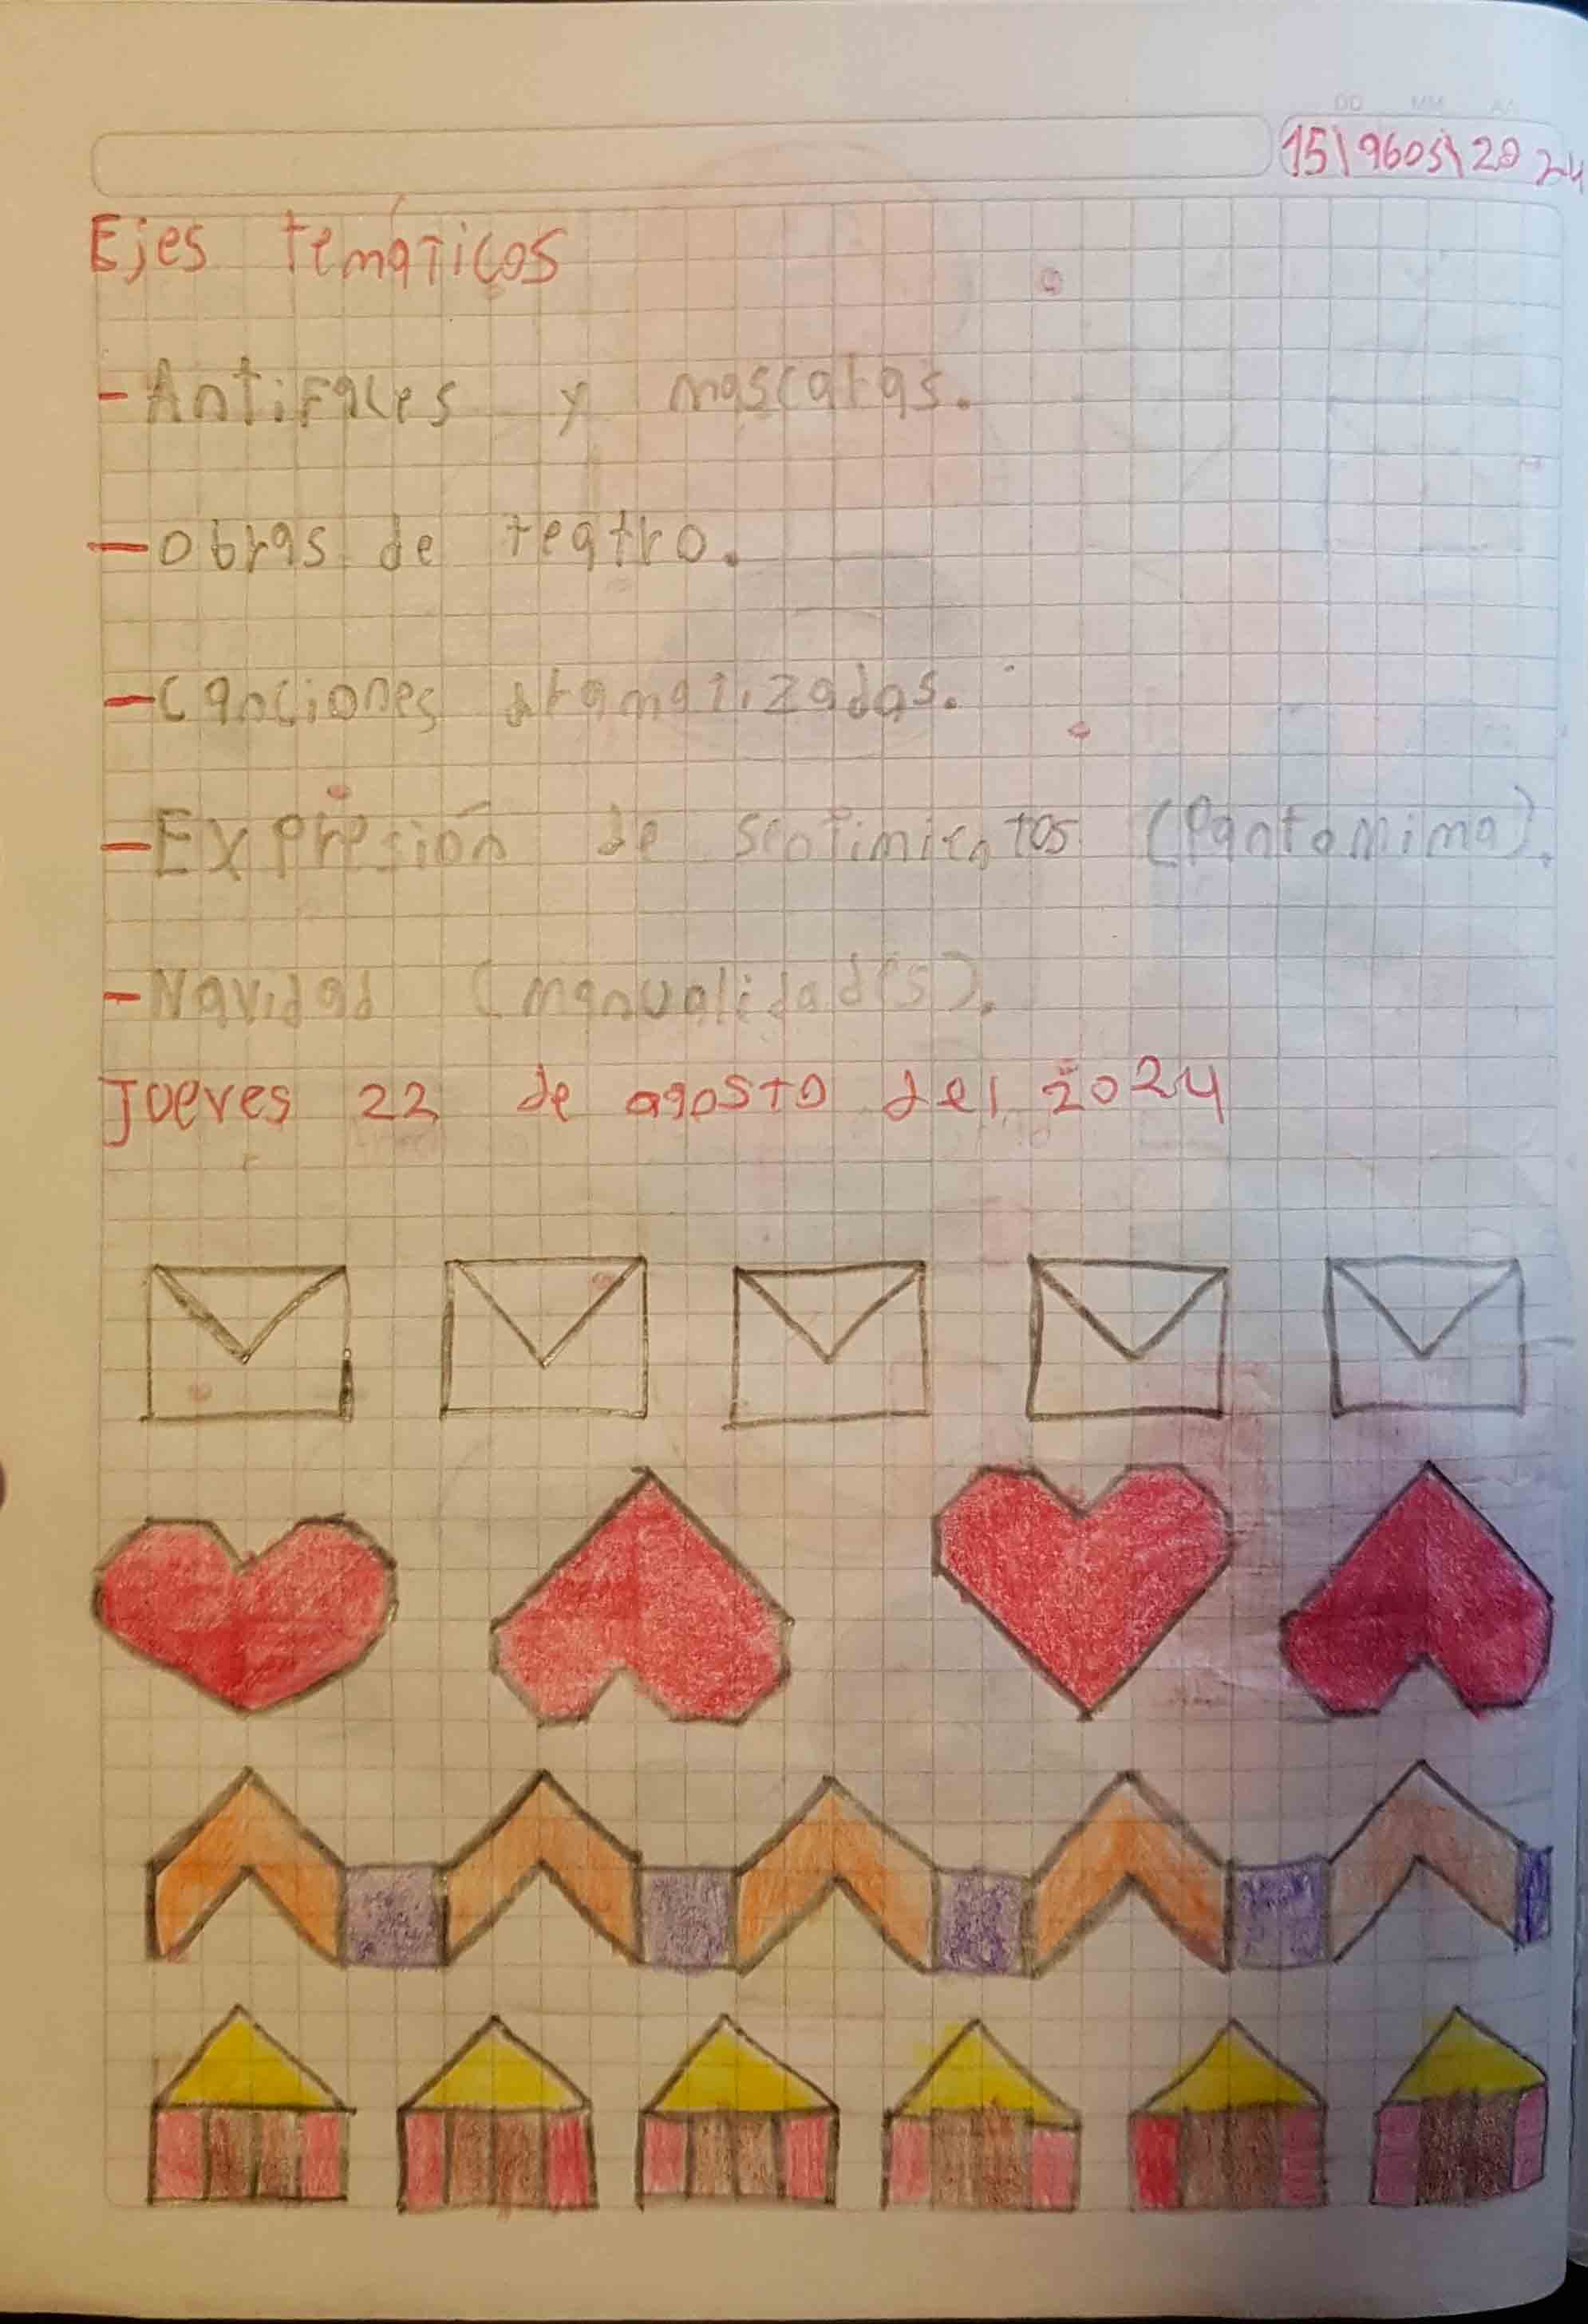 DD MM AA
15\agos\2024
Ejes temáticos
- Antifaces y mascaras.
- obras de teatro.
- canciones dramatizadas.
- Expresión de sentimientos (Pantomima).
- Navidad (manualidades).
Jueves 22 de agosto del 2024